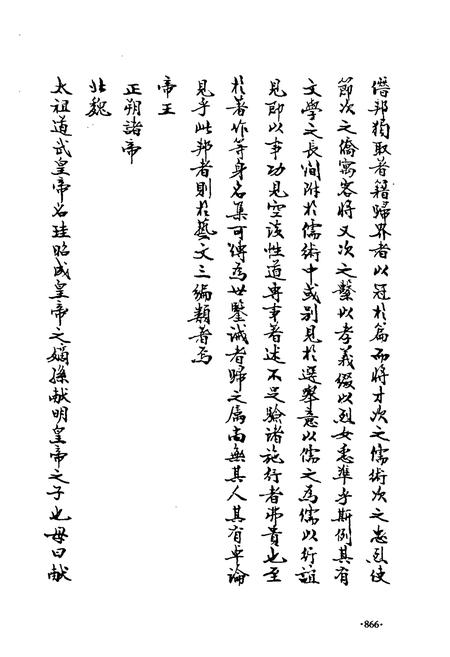 僭邦獨取著籍歸界者以冠於篇而將才次之儒術次之忠烈使
節次之僑寓客將又次之繫以孝義綴以烈女悉準乎斯例其有
文學之長間附於儒術中或別見於選舉意以儒之為儒以行誼
見即以事功見空談性道專事著述不足驗諸施行者弗貴也至
於著作等身名集可傳為世鑒誡者歸之屬尚無其人其有卓論
見乎此邦者則於藝文三編類著焉
帝王
正朔諸帝
北魏
太祖道武皇帝名珪昭成皇帝之嫡孫獻明皇帝之子也母曰獻
·866·